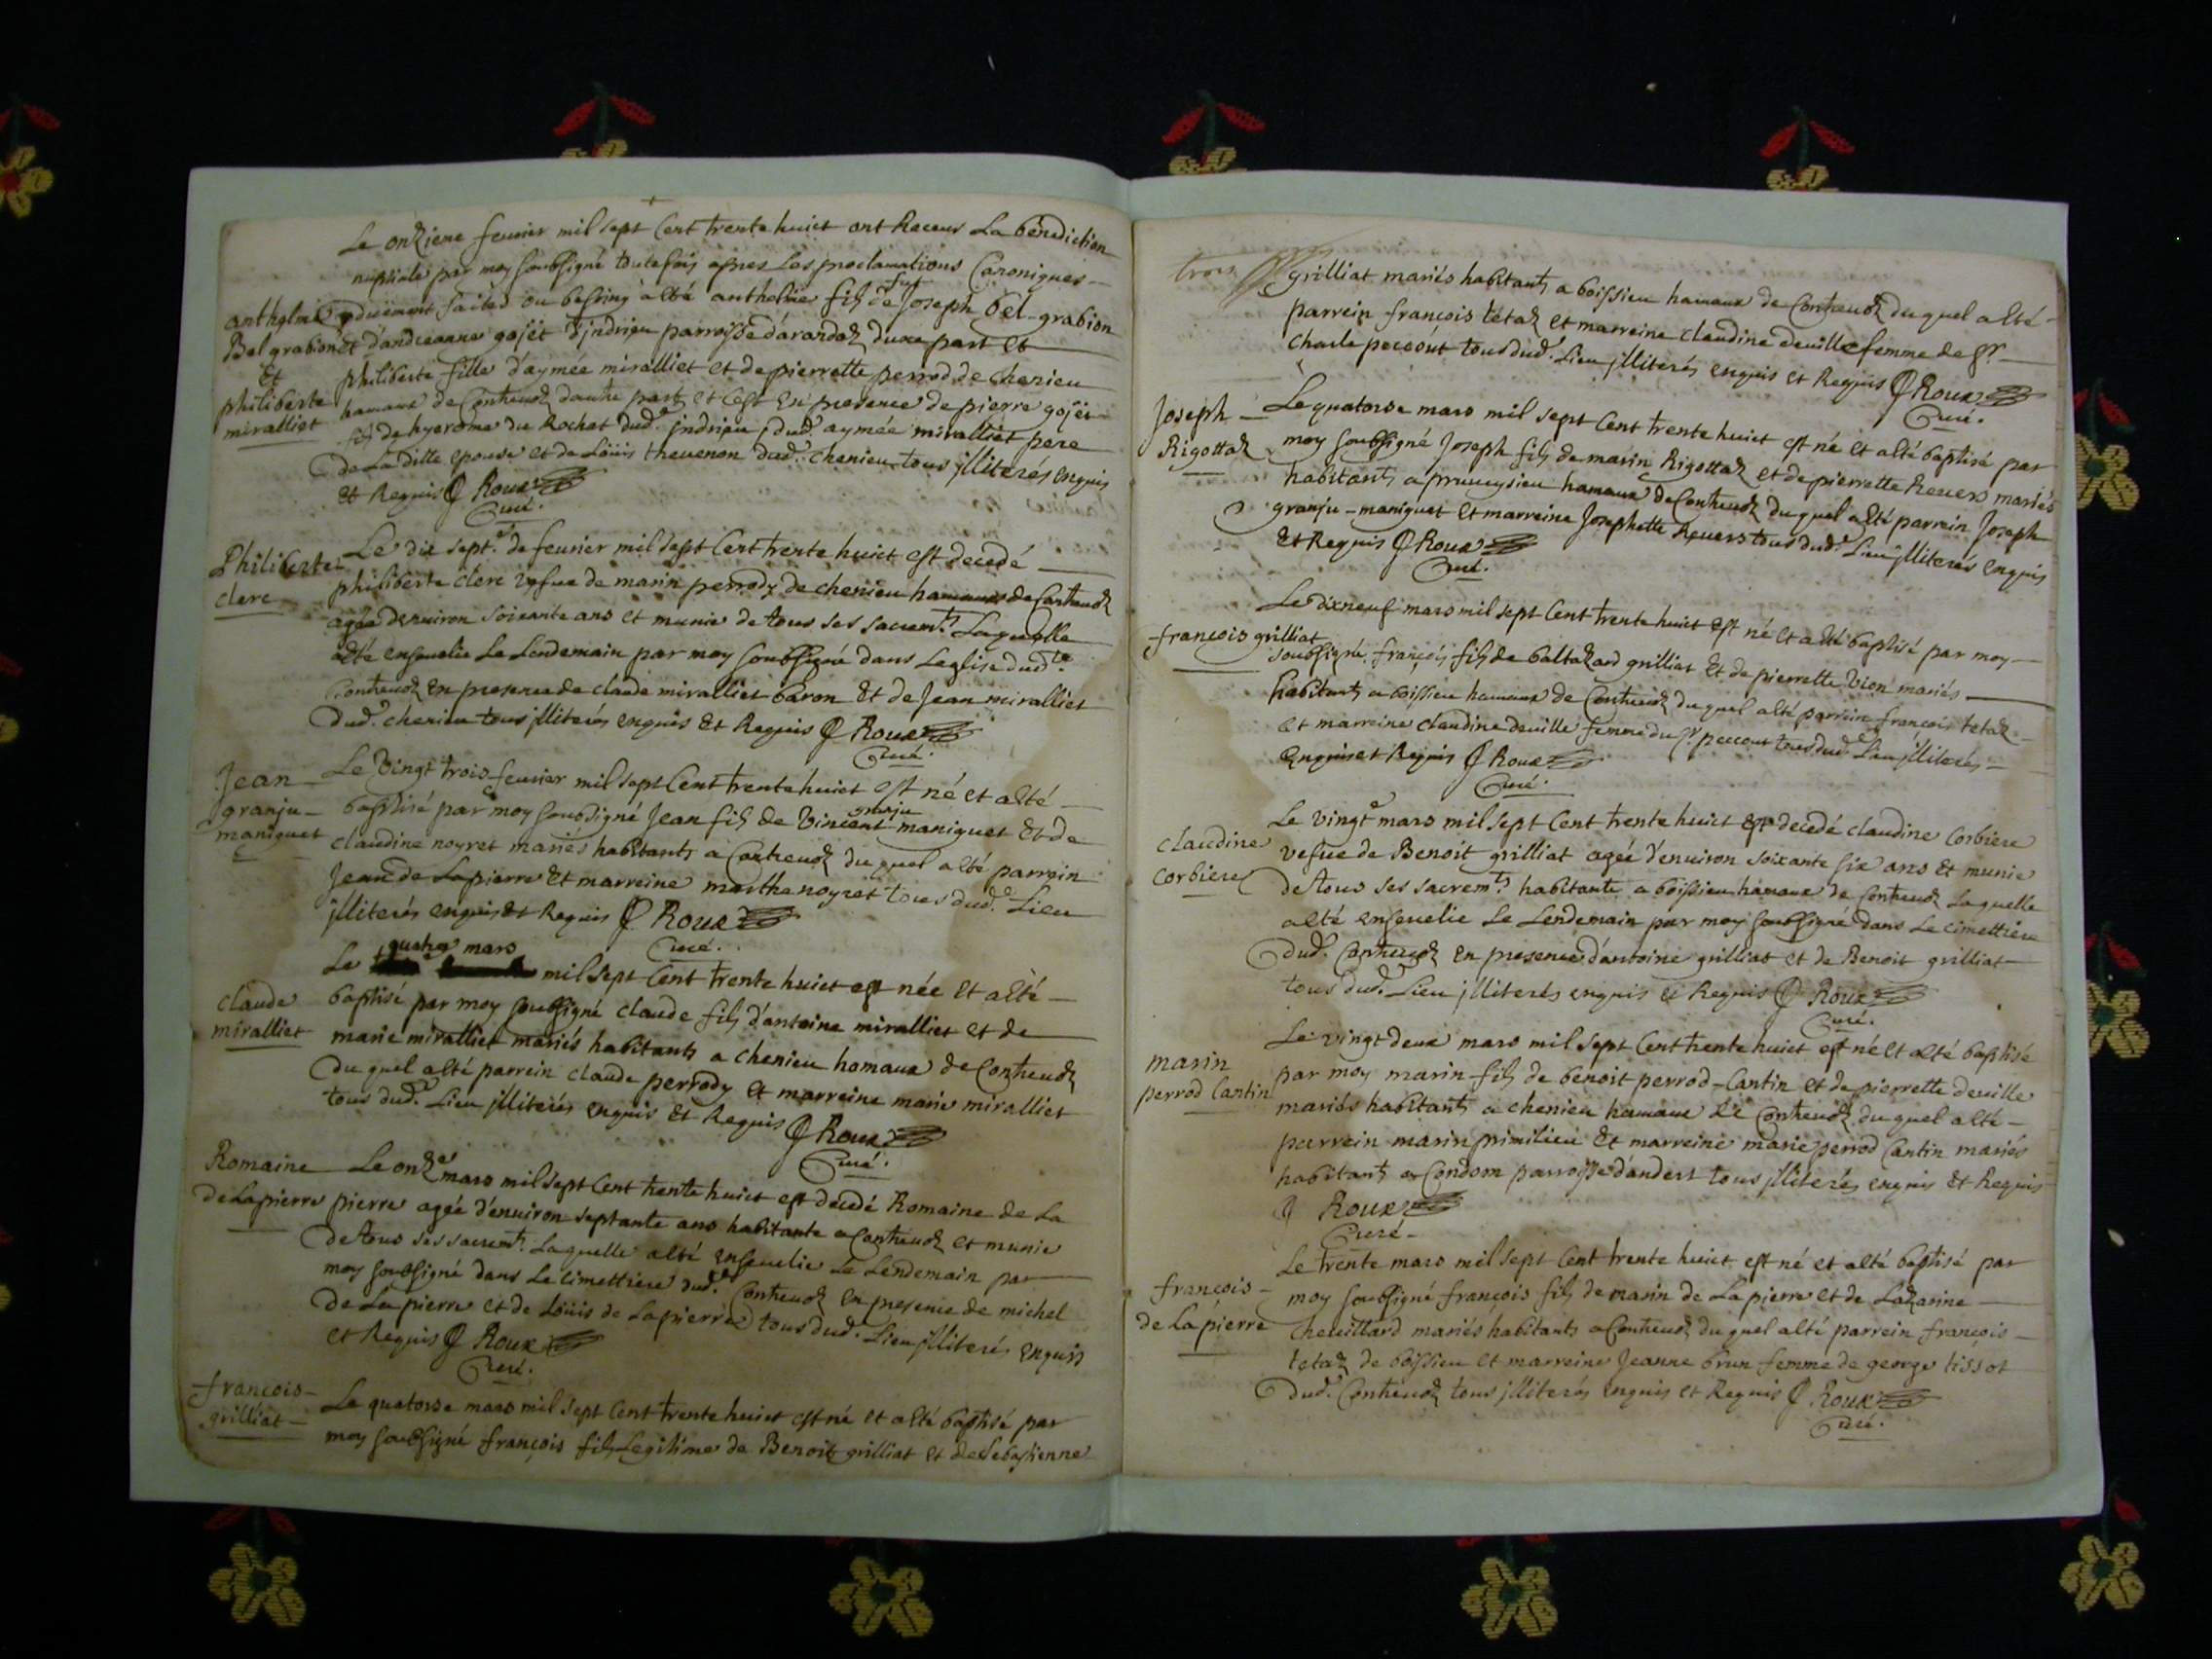 Le onzieme feurier mil sept Cent trente huict ont Receus La bénédiction
nuptiale par moy soubsigné toutefois apres Les proclamations Canoniques
anthelme duëment faites ou besoing a été anthelme fils de feu Joseph bel-grabion
Bel grabion et d'andréanne gojët d'jndrieu parroisse d'arandaz dune part et
Et philiberte fille d'aymée miralliet et de pierrette perrod de chenieu
philiberte hamaux de Contreuoz dautre part et c'est En presence de pierre gojët
miralliet fils de hyerome du Rochat dud.t jndrieu dud.t aymée miralliet pere
de La ditte epouse et de Loüis theuenon dud.t chenieu tous jlliterés enquis
et Requis J Roux
Curé.
Philiberte Le dix sept.e de feurier mil sept Cent trente huict est decedé
clerc philiberte clerc vefue de marin perrody de chenieu hamaux de Contreuoz
agée denuiron soixante ans et munie de tous ses sacrem.ts Laquelle
a été enseuelie Le Lendemain par moy soubsigné dans Leglise dud.t
Contreuoz En presence de claude miralliet-baron et de Jean miralliet
dud.t chenieu tous jlliterés enquis et Requis J Roux
Curé.
Jean Le vingt trois feurier mil sept Cent trente huict est né et a été
granju- baptisé par moy soubsigné Jean fils de Vincent granju maniguet et de
maniguet claudine noyret mariés habitants a Contreuoz du quel a été parrein
Jean de Lapierre et marreine marthe noyret tous dud.t Lieu
jlliterés enquis et Requis J Roux
Curé.
Le quatre mars mil sept Cent trente huict est née et a été
claude baptisé par moy soubsigné claude fils d'antoine miralliet et de
miralliet marie miralliet mariés habitants a chenieu hamaux de Contreuoz
du quel a été parrein claude perrody et marreine marie miralliet
tous dud.t Lieu jlliterés enquis et Requis J Roux
Curé.
Romaine Le onz.e mars mil sept Cent trente huict est decedé Romaine de La
de Lapierre pierre agée d'enuiron septante ans habitante a Contreuoz et munie
de tous ses sacrem.ts Laquelle a été enseuelie Le Lendemain par
moy soubsigné dans Le cimettiere dud.t Contreuoz en presence de michel
de La pierre et de Loüis de Lapierre tous dud.t Lieu jlliterés enquis
et Requis J Roux
Curé.
françois Le quatorse mars mil sept Cent trente huict est né et a été baptisé par
grilliat moy soubsigné françois fils Legitime de Benoit grilliat et de Sebastienne
trois
grilliat mariés habitants a boissieu hamaux de Contreuoz du quel a été
parrein françois tétaz et marreine claudine deuille femme de S.r
charle peccout tous dud.t Lieu jlliterés enquis et Requis J Roux
Curé.
Joseph Le quatorse mars mil sept Cent trente huict est né et a été baptisé par
Rigottaz moy soubsigné Joseph fils de marin Rigottaz et de pierrette Reuers mariés
habitants a preueysieu hamaux de Contreuoz du quel a été parrein Joseph
granju-maniguet et marreine Josephette Reuers tous dud.t Lieu jlliterés enquis
et Requis J Roux
Curé.
Le dixneuf mars mil sept Cent trente huict est né et a été baptisé par moy
françois grilliat soubsigné françois fils de baltazard grilliat et de pierrette Vion mariés
habitants a boissieu hamaux de Contreuoz du quel a été parrein françois tetaz
et marreine claudine deuille femme du S.r peccout tous dud.t Lieu jlliterés
enquis et Requis J Roux
Curé.
Le vingt.e mars mil sept Cent trente huict est decedé claudine Corbiere
claudine vefue de Benoit grilliat agée d'enuiron soixante six ans et munie
corbiere de tous ses sacrem.ts habitante a boissieu hamaux de Contreuoz Laquelle
a été enseuelie Le Lendemain par moy soubsigné dans Le cimettiere
dud.t Contreuoz en presence d'antoine grilliat et de Benoit grilliat
tous dud.t Lieu jlliterés enquis et Requis J Roux
Curé.
Le vingt deux mars mil sept Cent trente huict est né et a été baptisé
marin par moy marin fils de benoit perrod-Cantin et de pierrette deuille
perrod Cantin mariés habitants a chenieu hamaux de Contreuoz du quel a été
parrein marin primilieu et marreine marie perrod Cantin mariés
habitants a Condom parroisse d'andert tous jlliterés enquis et Requis
J Roux
Curé
Le trente mars mil sept Cent trente huict est né et a été baptisé par
françois moy soubsigné françois fils de marin de La pierre et de Lazarine
de Lapierre cheuillard mariés habitants a Contreuoz du quel a été parrein françois
tetaz de boissieu et marreine Jeanne brun femme de george tissot
dud.t Contreuoz tous jlliterés enquis et Requis J Roux
Curé.